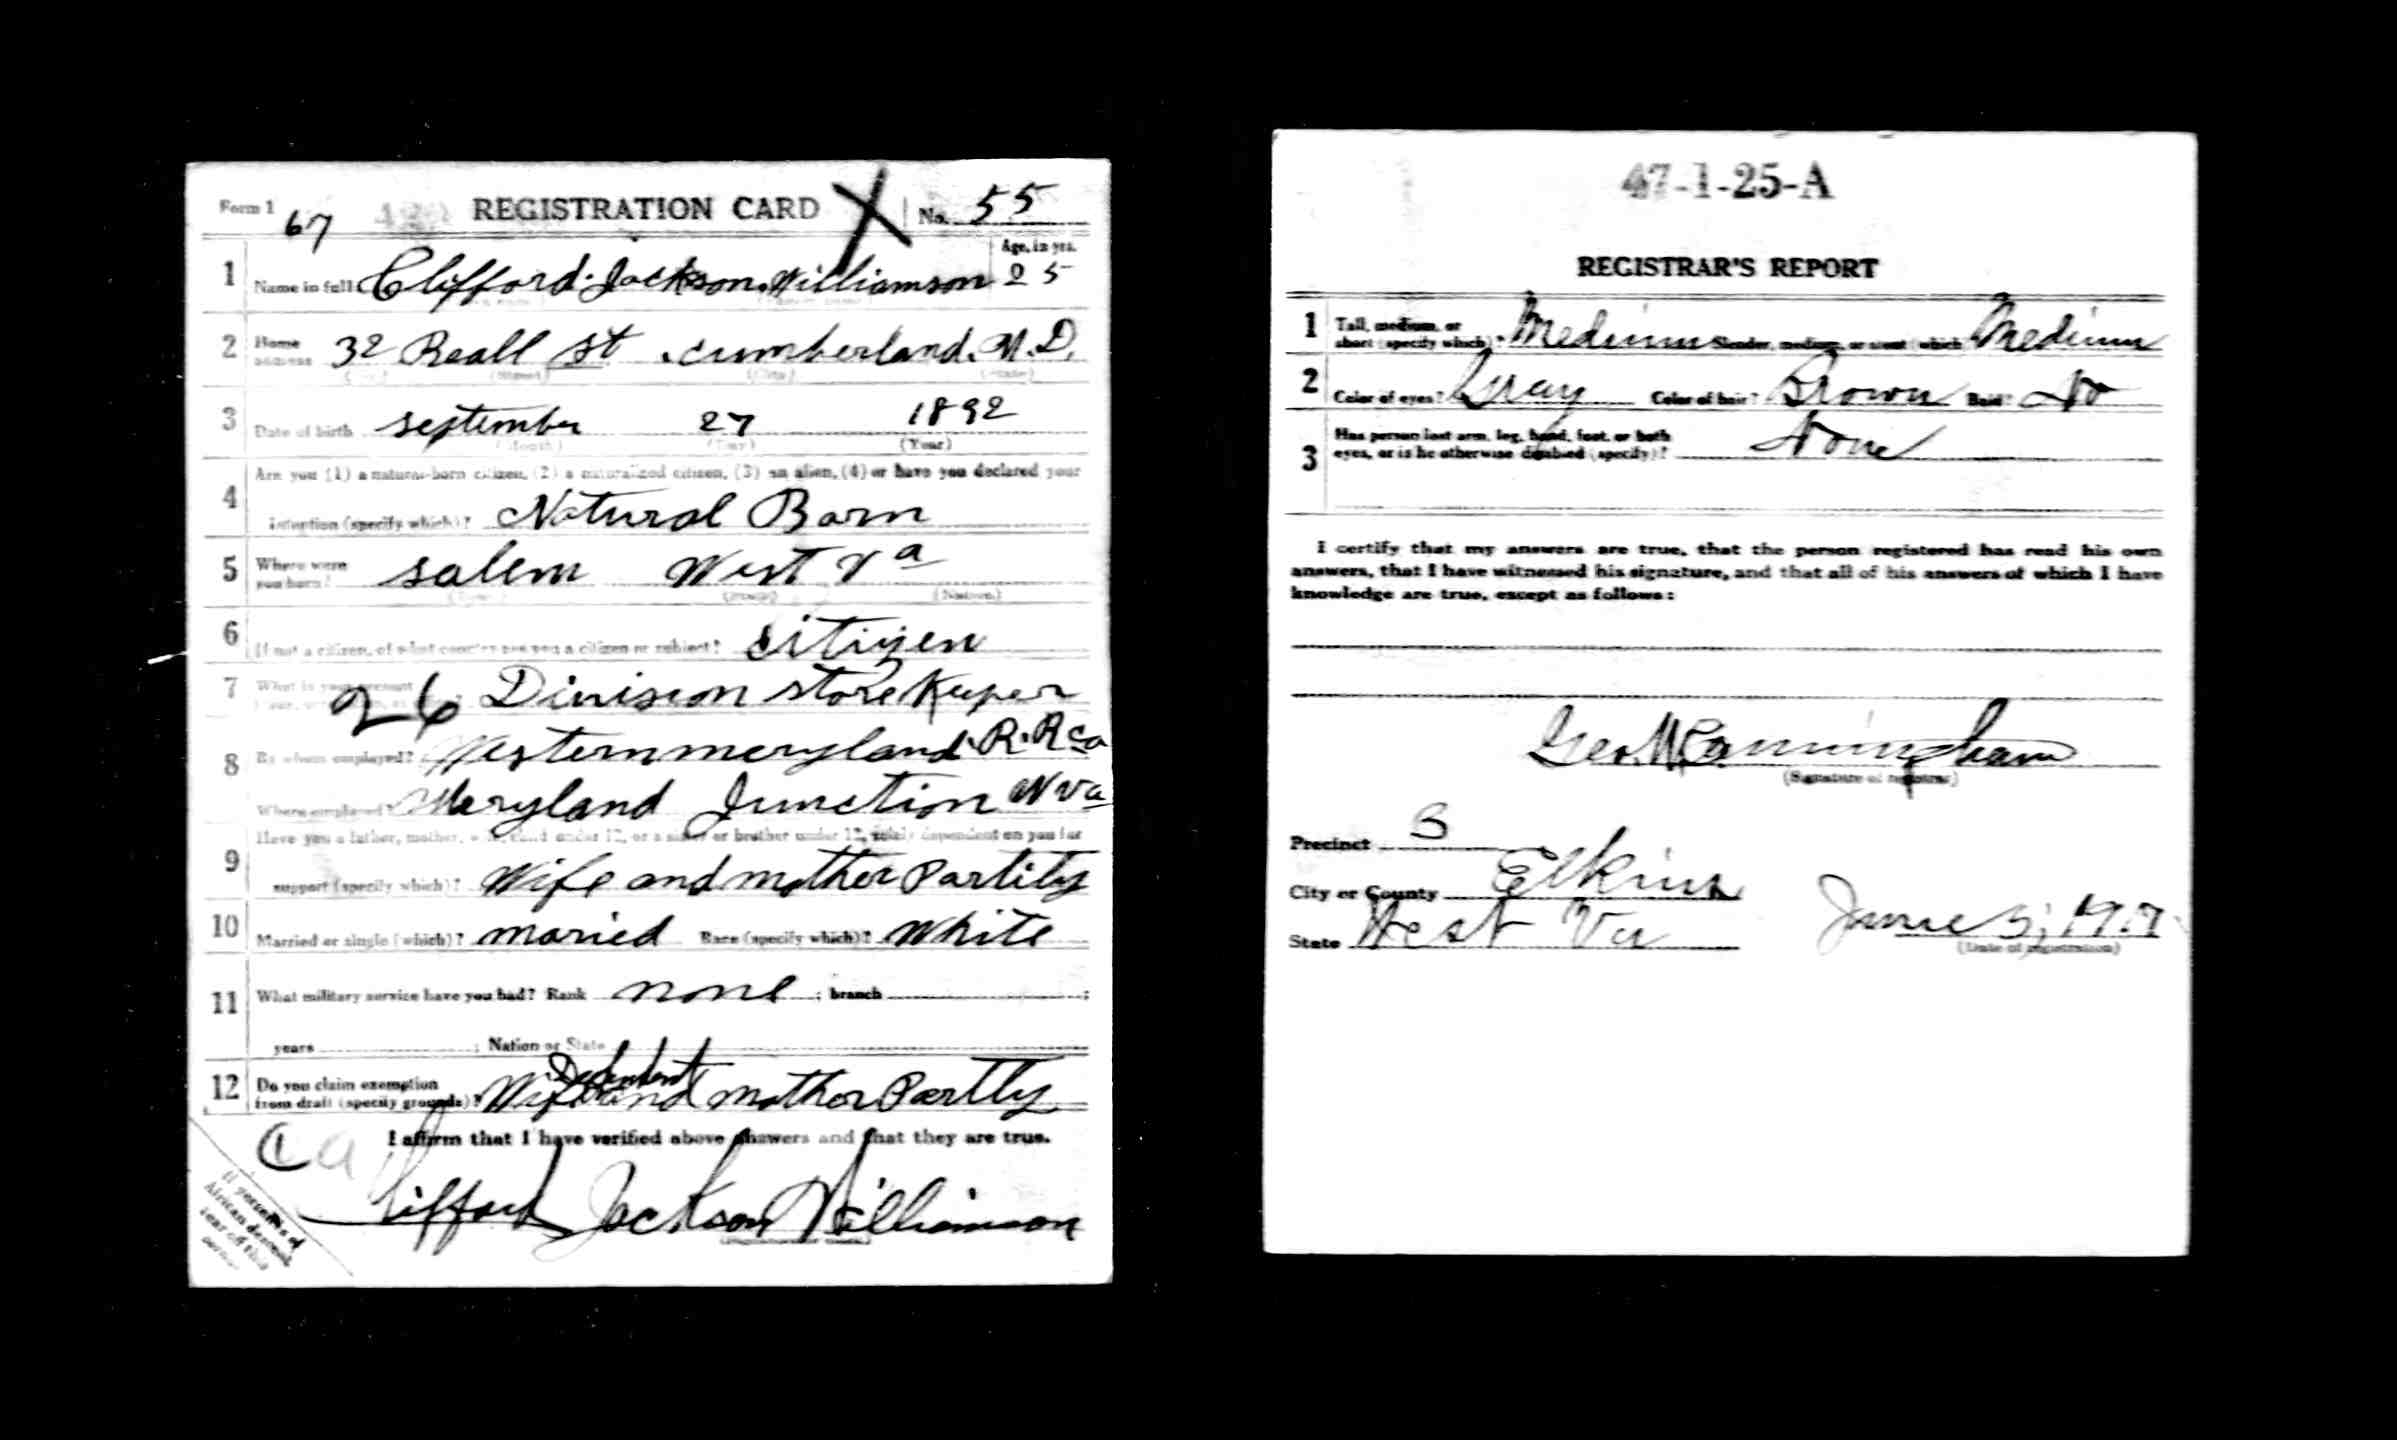 Form 1 67 REGISTRATION CARD X No. 55
Age, in yrs.
1 Name in full Clifford Jackson Williamson 25
2 Home address 32 Reall st cumberland. M.D.
(No.) (Street) (City) (State)
3 Date of birth september 27 1892
(Month) (Day) (Year)
Are you (1) a natural-born citizen, (2) a naturalized citizen, (3) an alien, (4) or have you declared your
4 intention (specify which)? Natural Born
5 Where were you born? salem West Va
(Town) (State) (Nation)
6 If not a citizen, of what country are you a citizen or subject? citizen
7 What is your present
26 Division store Keeper
8 By whom employed? Western meryland R.R co
Where employed? Meryland Junction W va
Have you a father, mother, wife, child under 12, or a sister or brother under 12, solely dependent on you for
9 support (specify which)? Wife and mother Partity
10 Married or single (which)? maried Race (specify which)? White
11 What military service have you had? Rank none ; branch ;
years ; Nation or State
Dependent
12 Do you claim exemption from draft (specify grounds)? Wife and mother Partly
I affirm that I have verified above answers and that they are true.
If person is of
African descent
tear off this
corner
Clifford Jackson Williamson
47-1-25-A
REGISTRAR'S REPORT
1 Tall, medium, or short (specify which)? Medium Slender, medium, or stout (which) Medium
2 Color of eyes? Gray Color of hair? Brown Bald? No
3 Has person lost arm, leg, hand, foot, or both
eyes, or is he otherwise disabled (specify)? None
I certify that my answers are true, that the person registered has read his own
answers, that I have witnessed his signature, and that all of his answers of which I have
knowledge are true, except as follows:
Geo. W Cunningham
(Signature of registrar)
Precinct 3
City or County Elkins
State West Va June 5, 1917
(Date of registration)